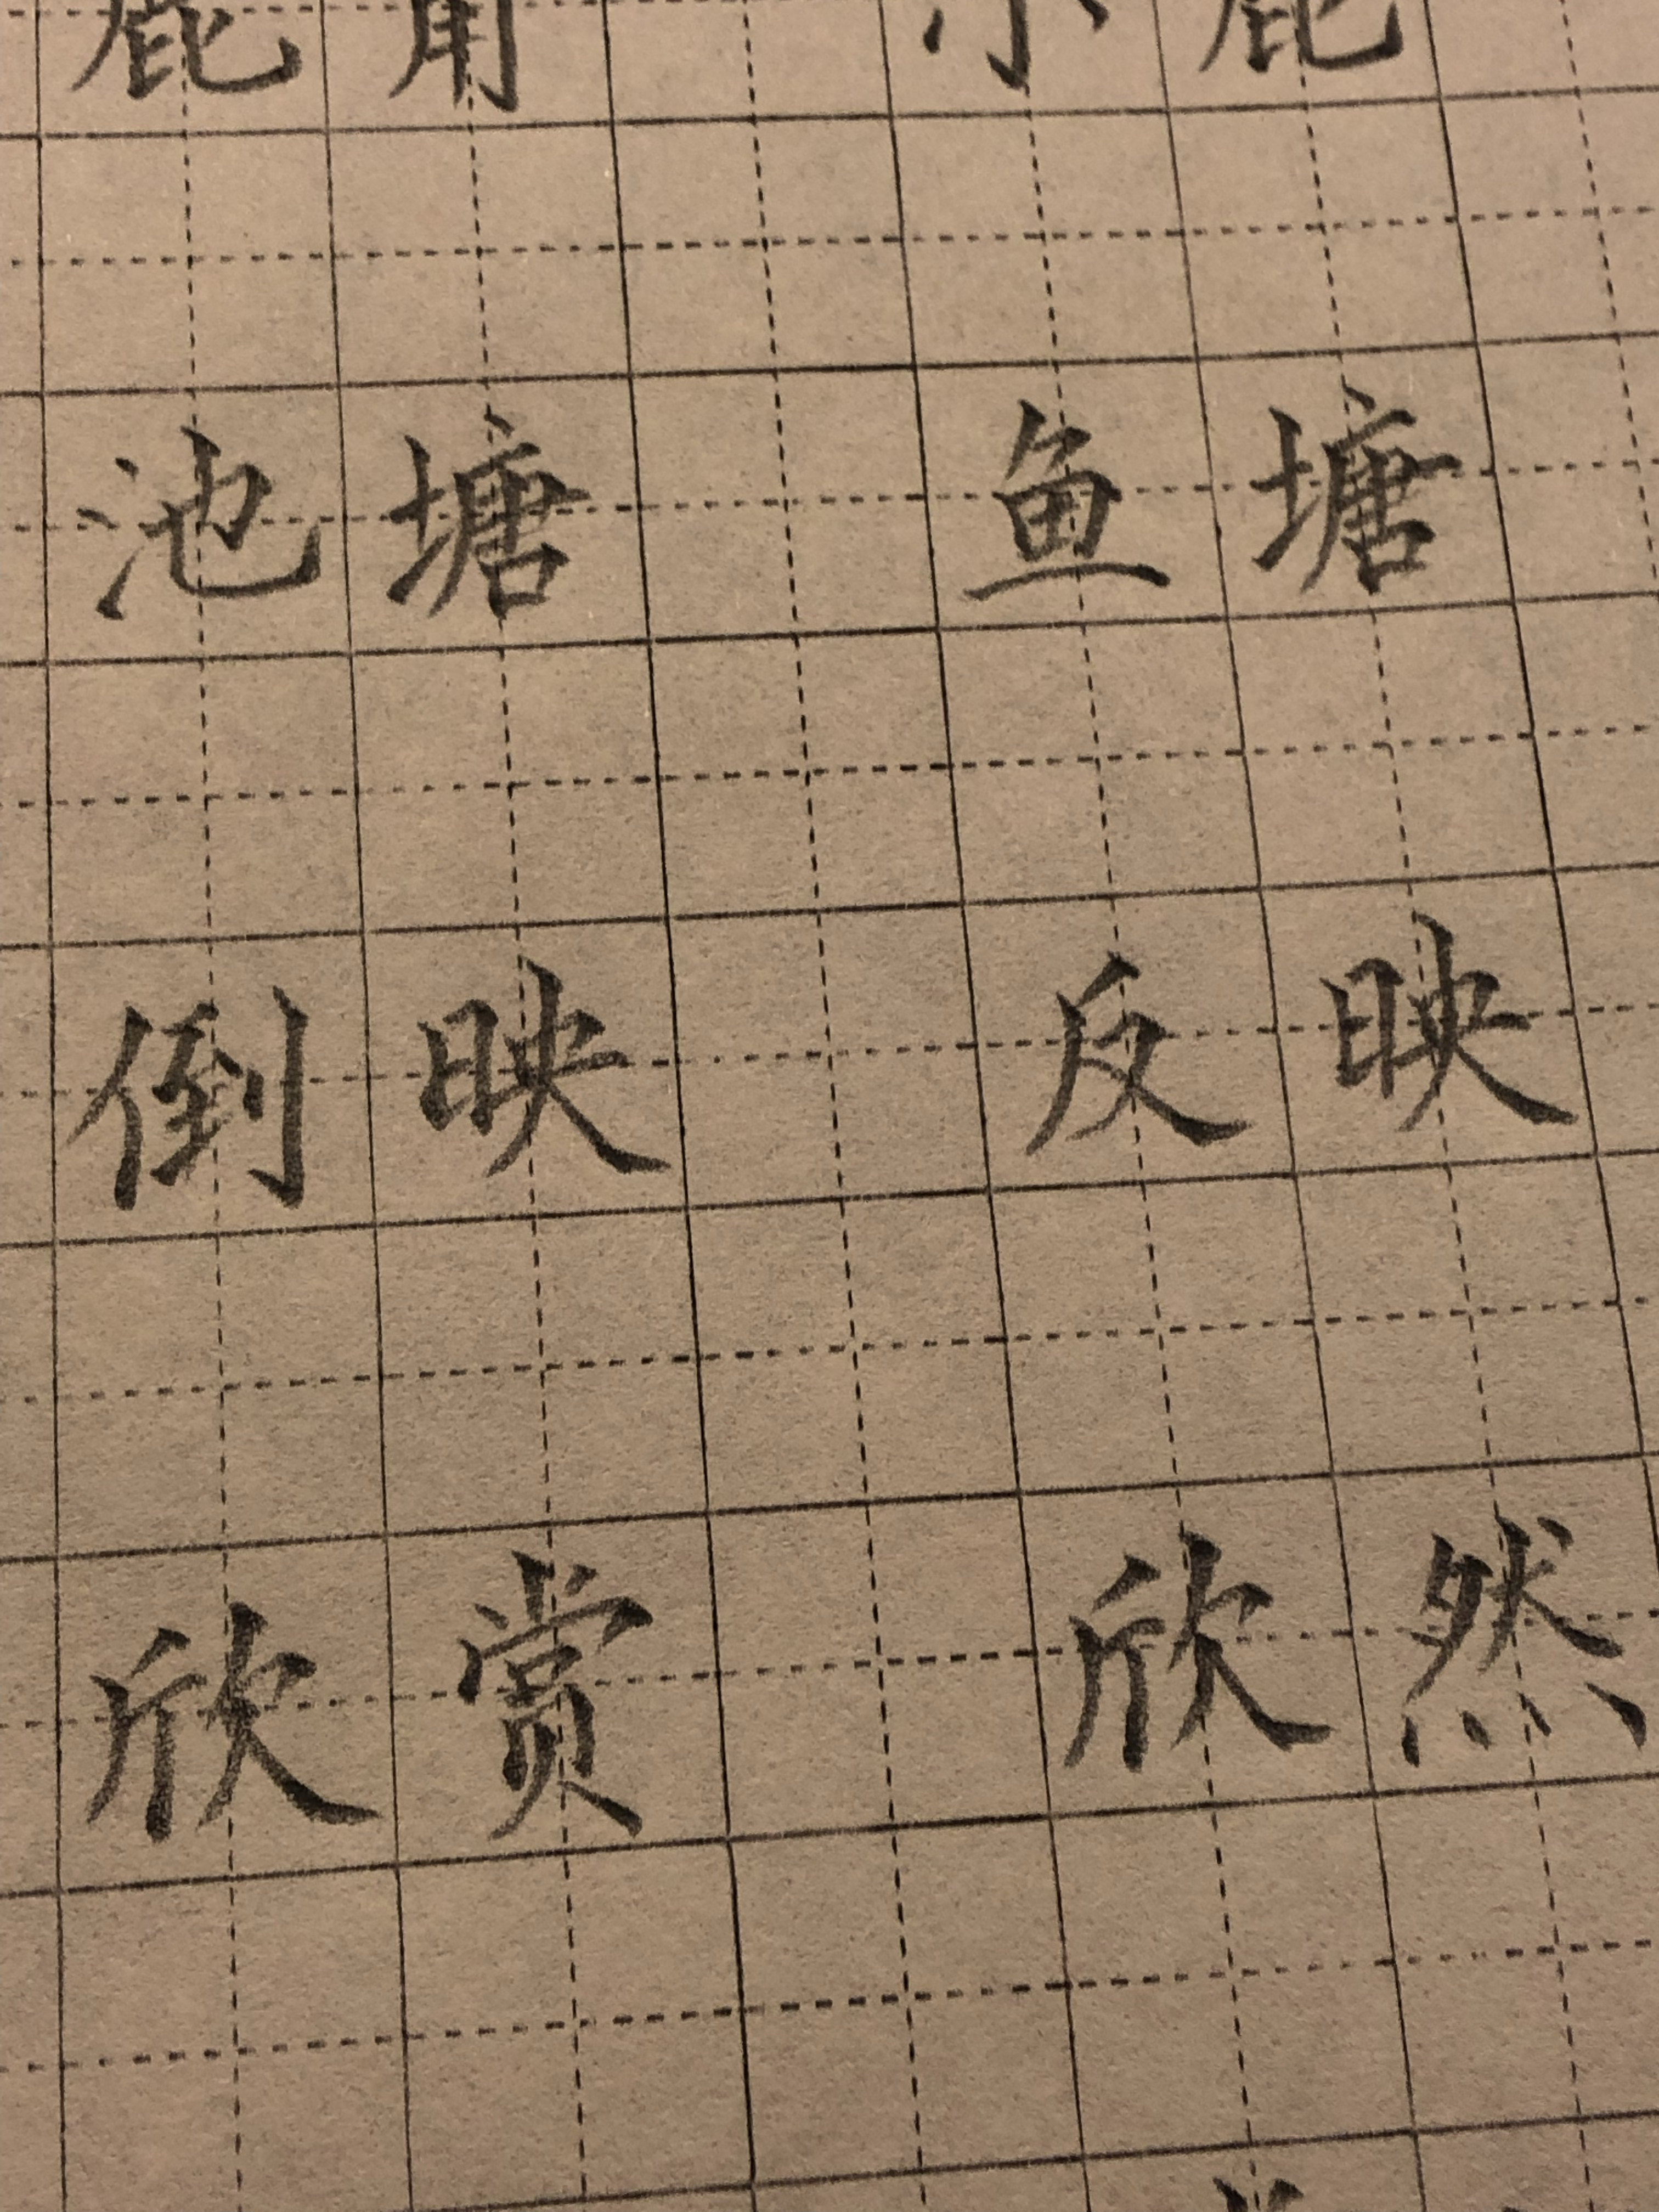 鹿角 小鹿
池塘 鱼塘
倒映 反映
欣赏 欣然